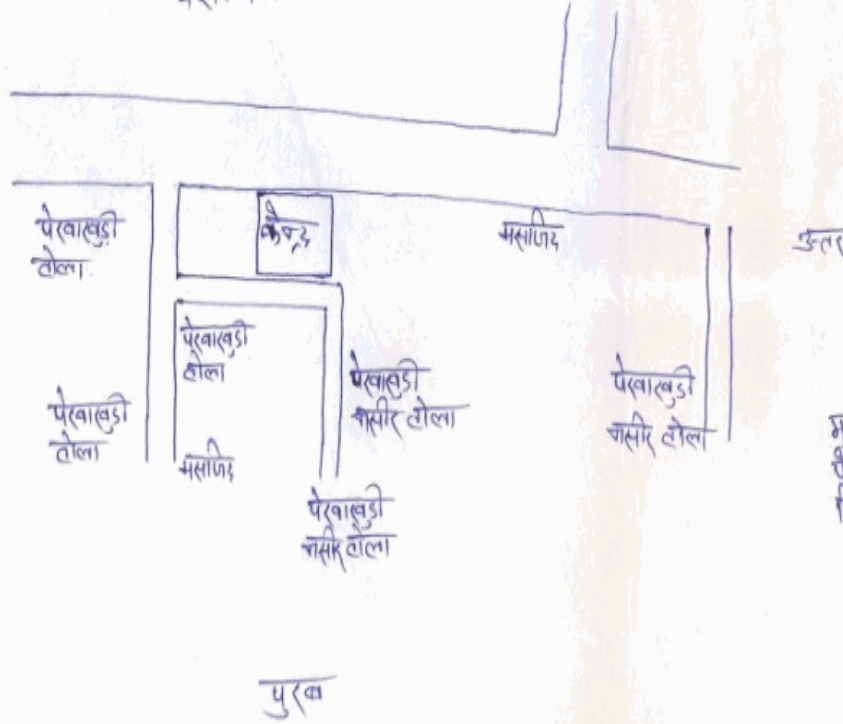 पेखाखुडी
टोला
केन्द्र
मसजिद
उत्तर
पेखाखुडी
टोला
पेखाखुडी
नसीर टोला
पेखाखुडी
नसीर टोला
पेखाखुडी
टोला
मसजिद
पेखाखुडी
नसीर टोला
पुरब